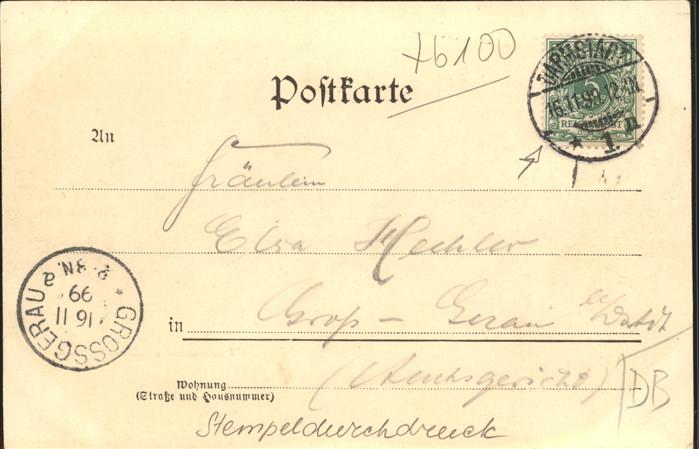 +6100
DARMSTADT
16.11.99.
1.
5
Postkarte
An
Fräulein
Elsa Hechler
in Groß-Gerau
(Amtsgericht)
Wohnung
(Straße und Hausnummer)
GROSSGERAU
16 11
99
DB
Stempeldurchdruck